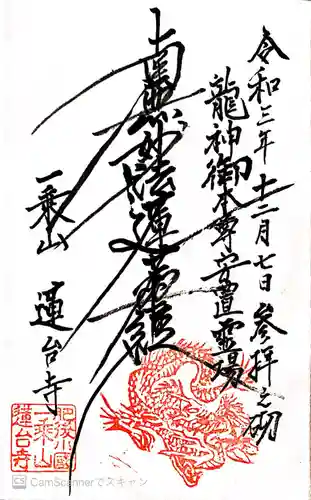 令和三年十二月七日参拝之砌
龍神御本尊安置霊場
南無妙法蓮華経
一乗山
蓮台寺
肥後小國
一乗山
蓮台寺
CS CamScannerでスキャン